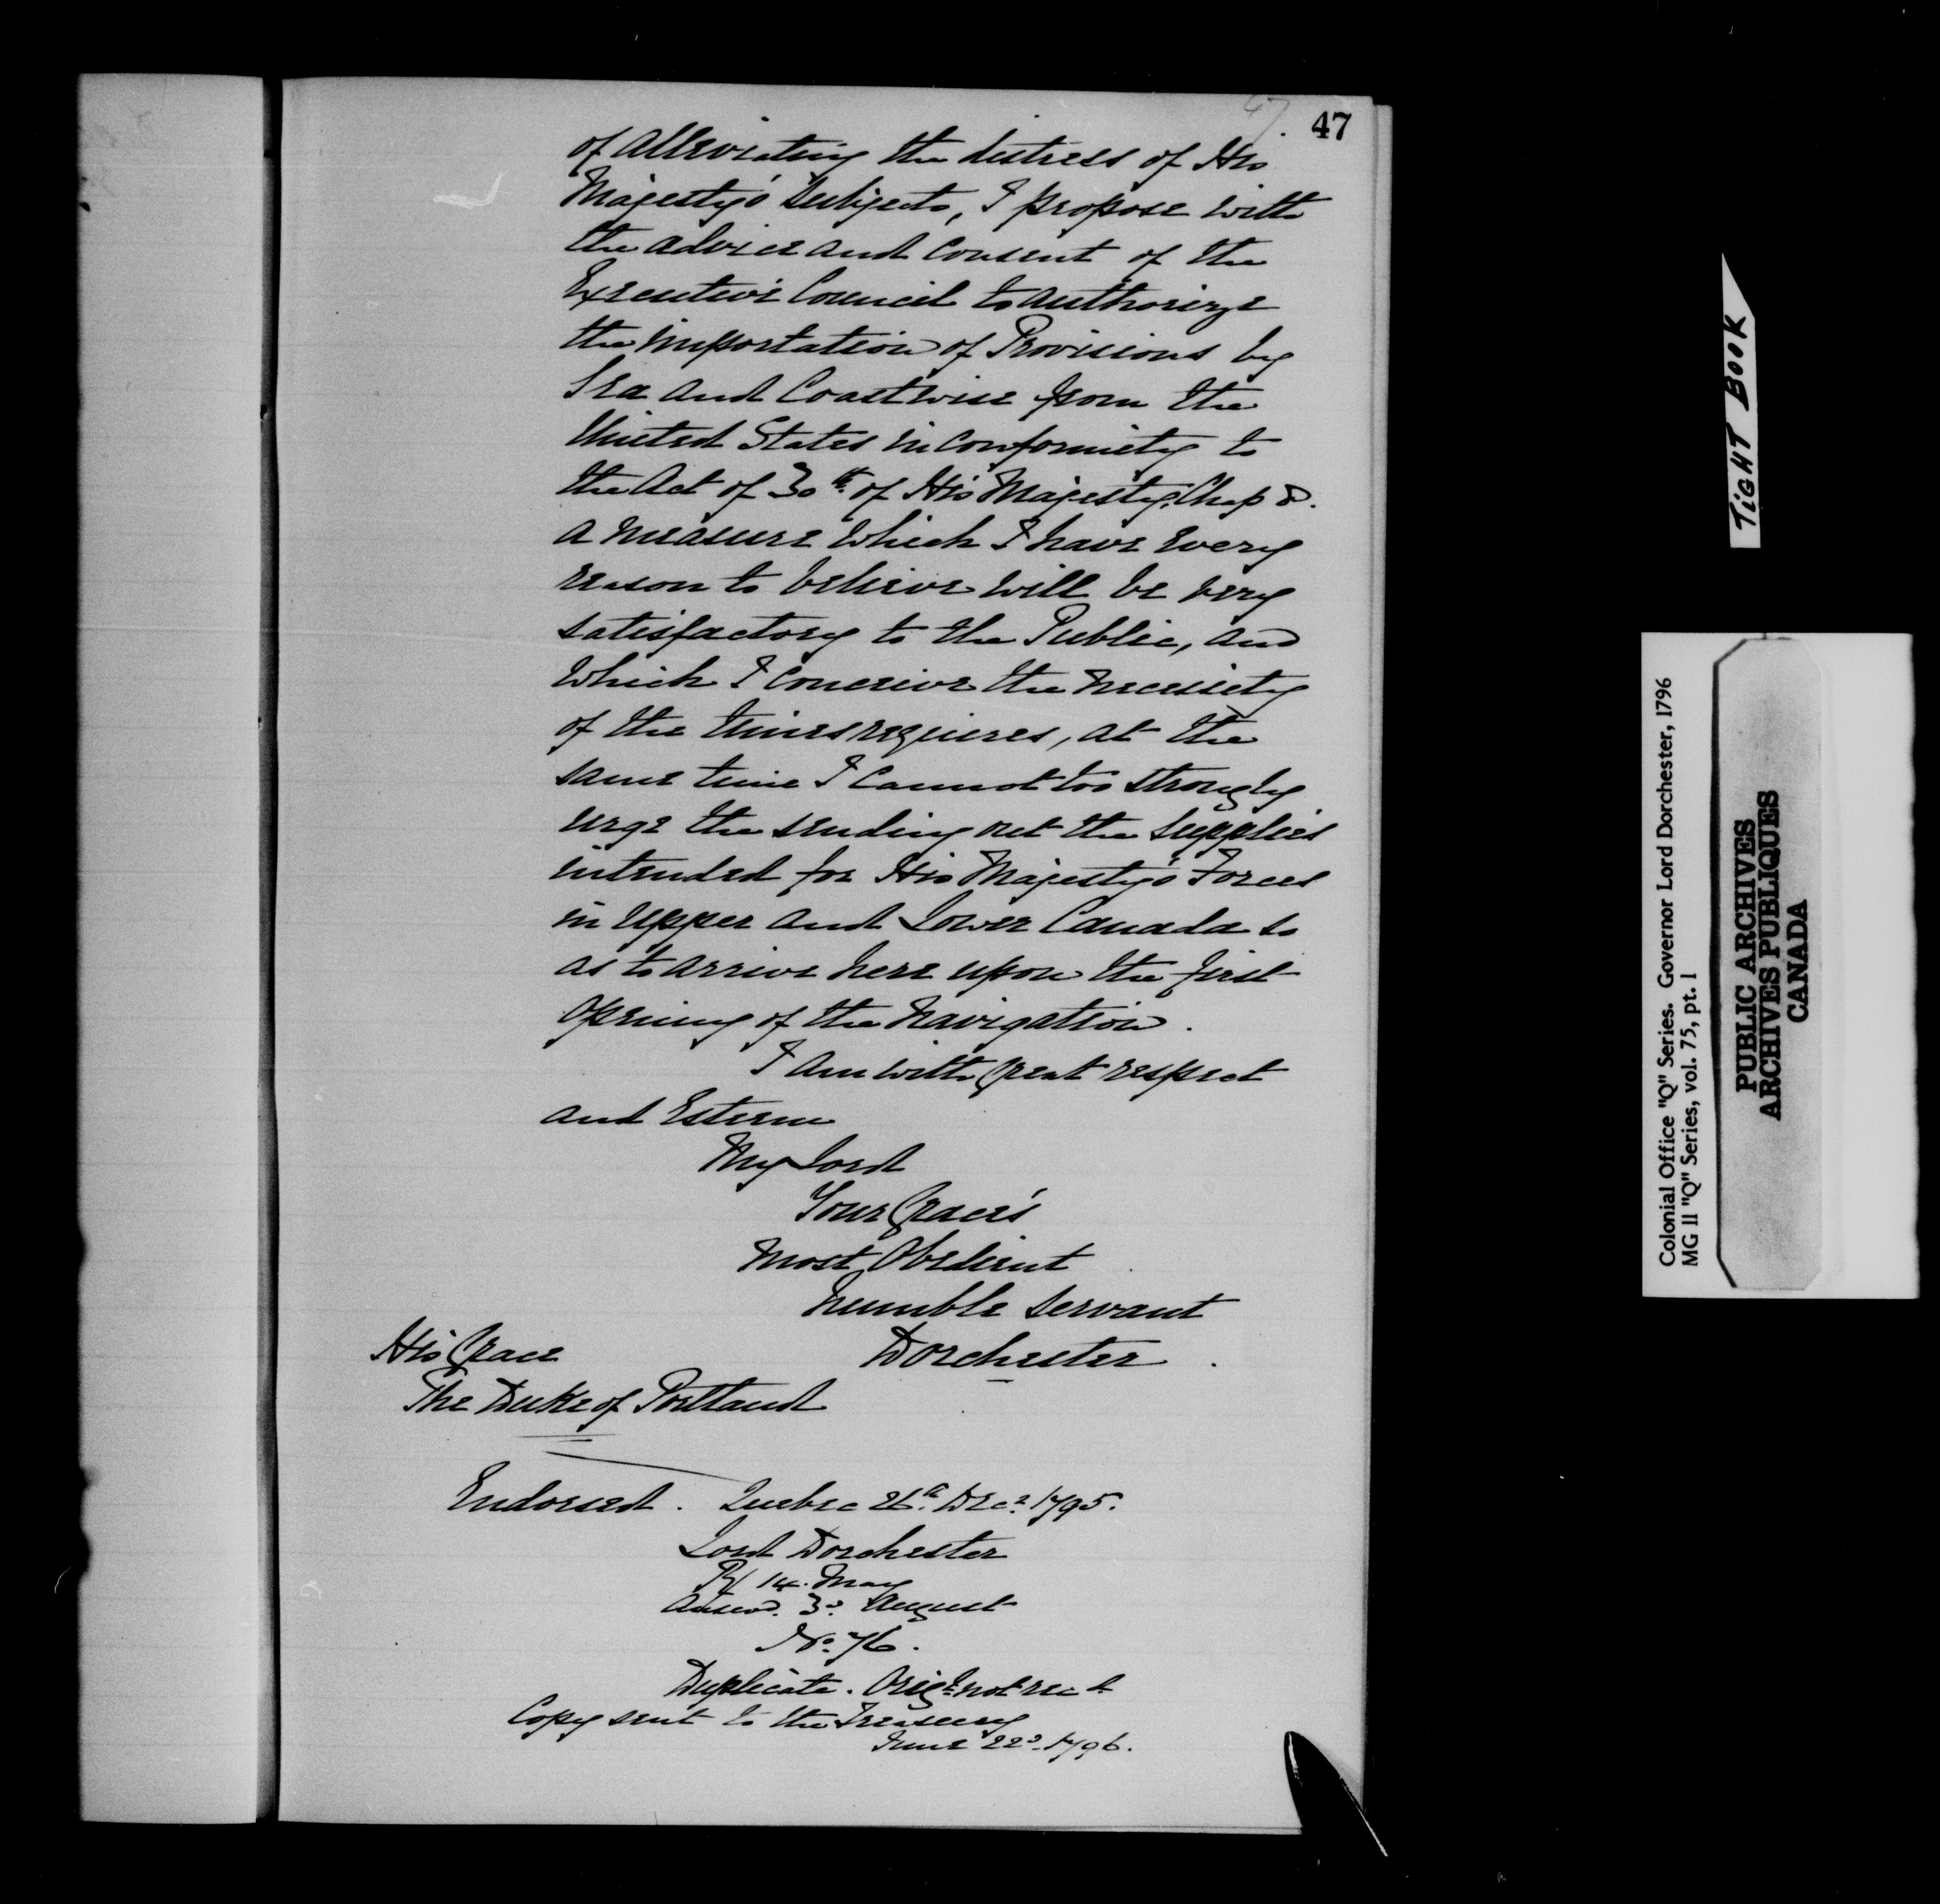 47. 47
of alleviating the distress of His
Majesty's Subjects, I propose with
the advice and consent of the
Executive Council to authorize
the importation of Provisions by
Sea and Coastwise from the
United States in conformity to
the Act of 30th of His Majesty, Chap 8.
a measure which I have every
reason to believe will be very
satisfactory to the Public, and
which I conceive the necessity
of the times requires, at the
same time I cannot too strongly
urge the sending out the supplies
intended for His Majesty's Forces
in Upper and Lower Canada so
as to arrive here upon the first
opening of the Navigation.
I am with great respect
and Esteem
My Lord
Your Grace's
Most Obedient
humble servant
Dorchester
His Grace
The Duke of Portland
Endorsed. Quebec 26th Decr 1795.
Lord Dorchester
R/ 14. May
Answd. 3d August
No. 76.
Duplicate. Origl. not recd
Copy sent to the Treasury
June 22d. 1796.
TIGHT BOOK
Colonial Office "Q" Series. Governor Lord Dorchester, 1796
MG 11 "Q" Series, vol. 75, pt. 1
PUBLIC ARCHIVES
ARCHIVES PUBLIQUES
CANADA